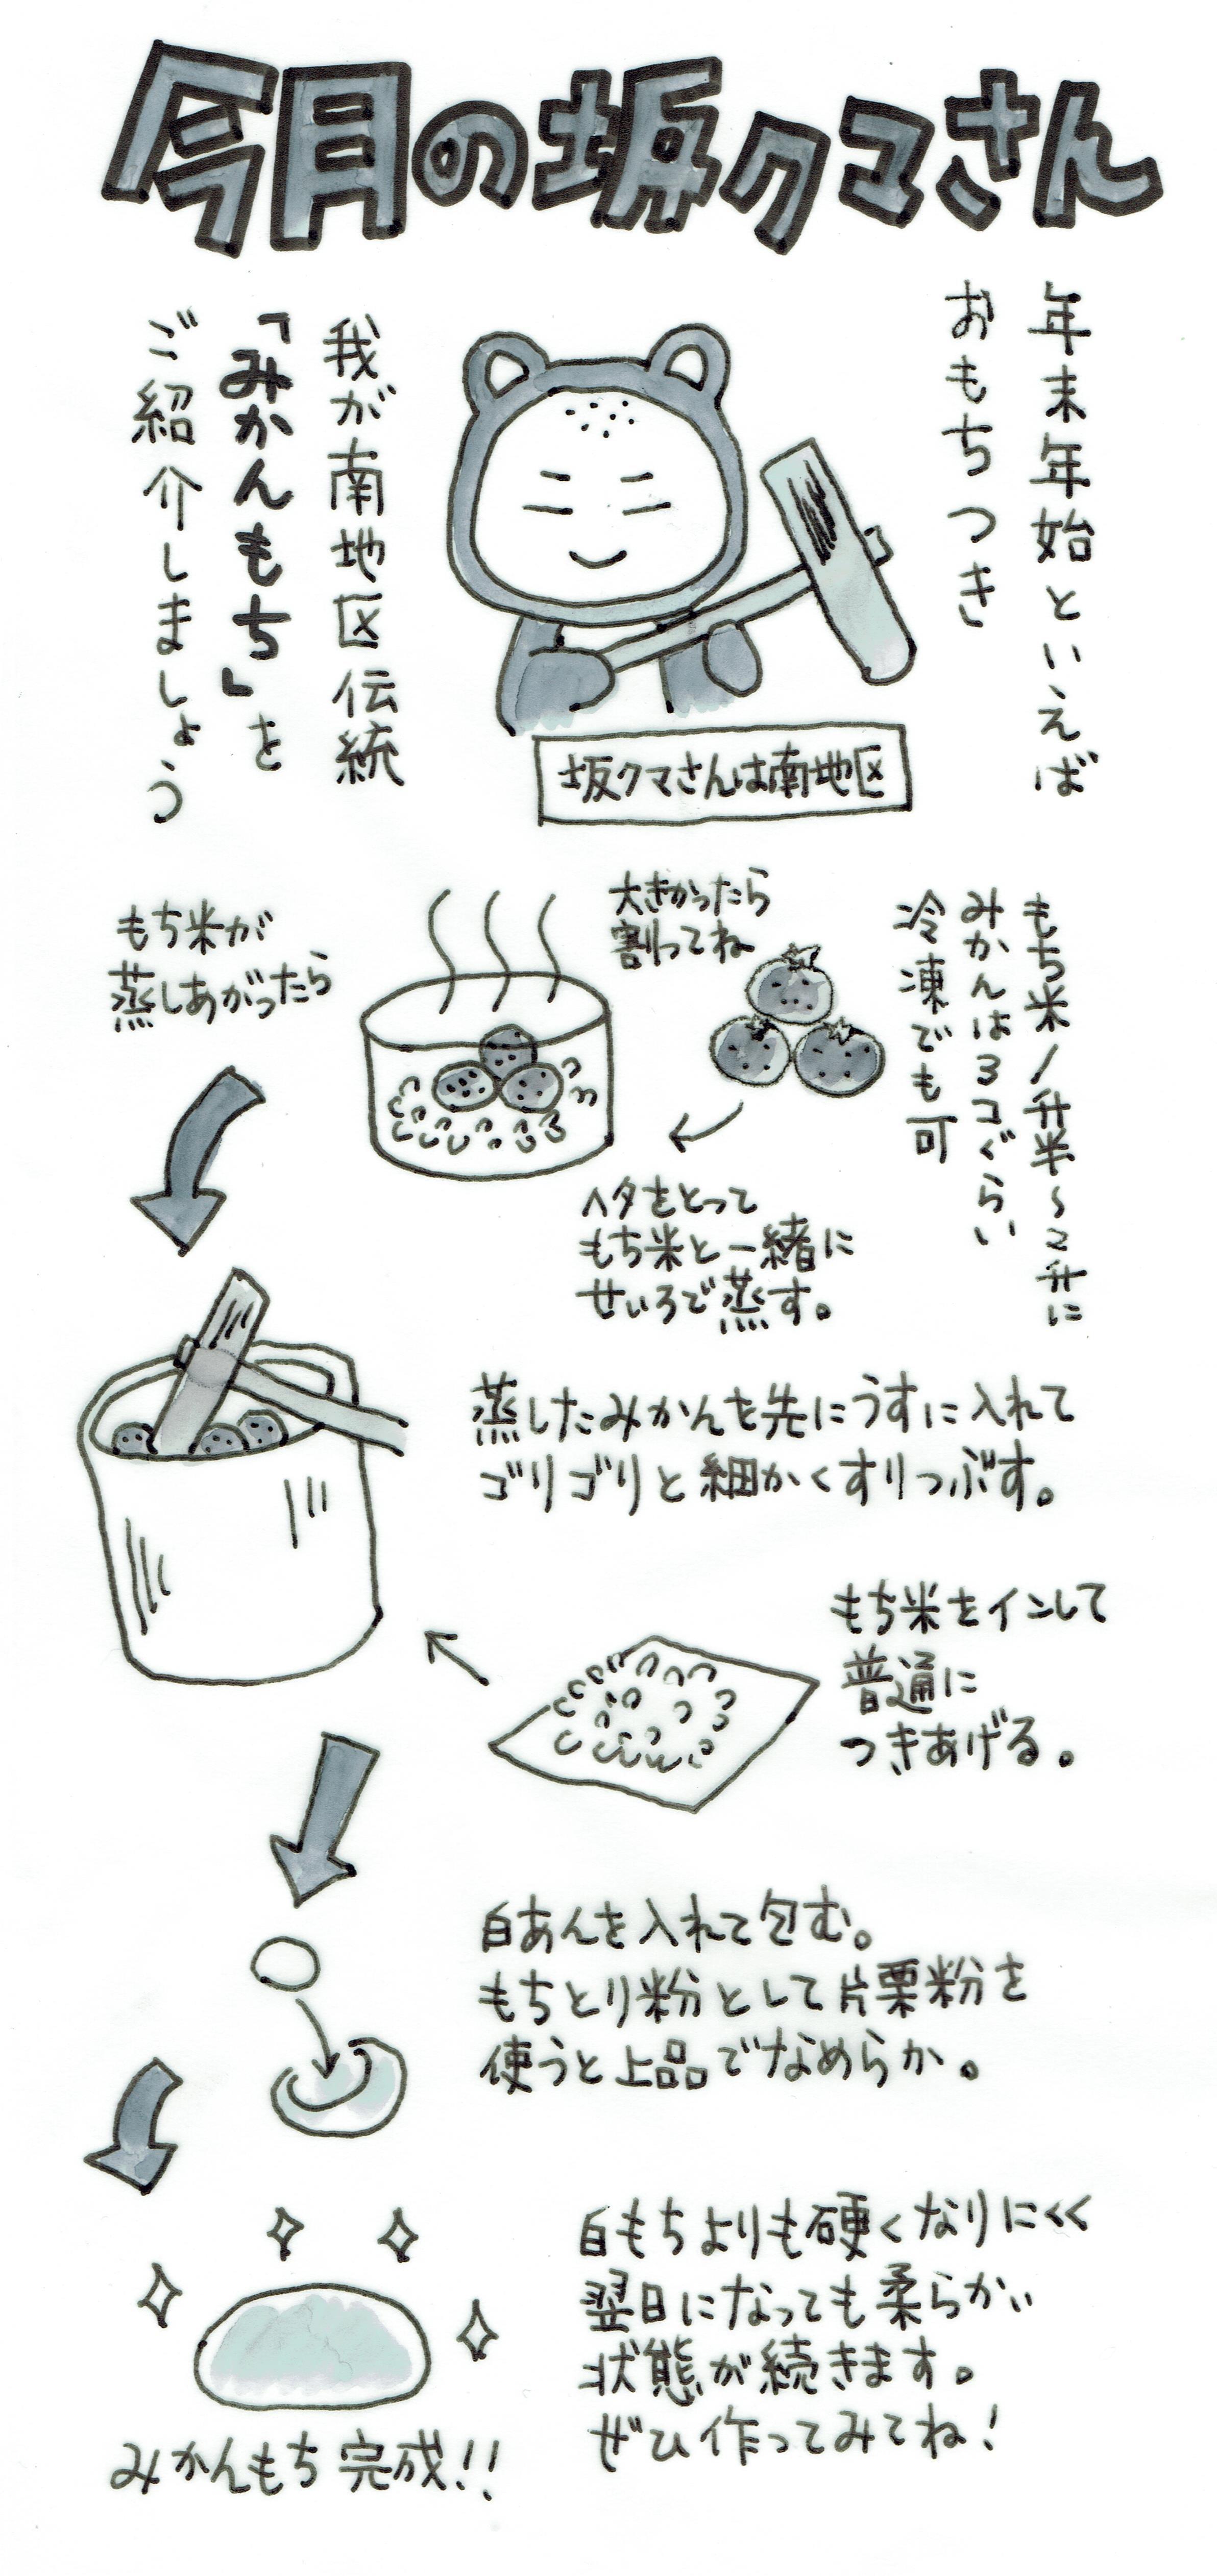 今月の坂クマさん
年末年始といえば
おもちつき
我が南地区伝統
「みかんもち」を
ご紹介しましょう
坂クマさんは南地区
もち米1升半~2升に
みかんは3コぐらい
冷凍でも可
大きかったら
割ってね
ヘタをとって
もち米と一緒に
せいろで蒸す。
もち米が
蒸しあがったら
蒸したみかんを先にうすに入れて
ゴリゴリと細かくすりつぶす。
もち米をインして
普通に
つきあげる。
白あんを入れて包む。
もちとり粉として片栗粉を
使うと上品でなめらか。
白もちよりも硬くなりにくく
翌日になっても柔らかい
状態が続きます。
ぜひ作ってみてね!
みかんもち完成!!